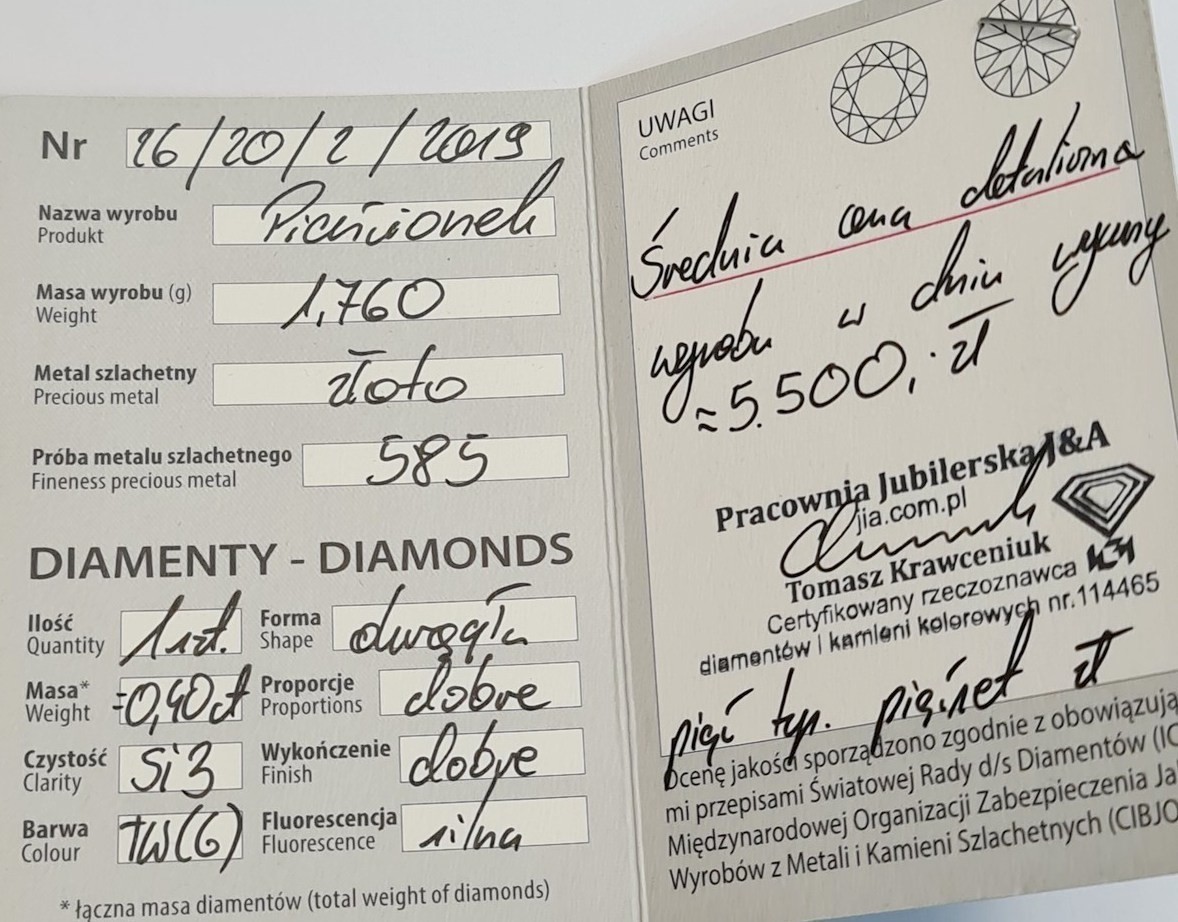 Nr 26/20/2/2019
Nazwa wyrobu Pierścionek
Produkt
Masa wyrobu (g) 1,760
Weight
Metal szlachetny złoto
Precious metal
Próba metalu szlachetnego 585
Fineness precious metal
DIAMENTY - DIAMONDS
Ilość 1szt. Forma okrągła
Quantity Shape
Masa* =0,40ct Proporcje dobre
Weight Proportions
Czystość Si3 Wykończenie dobre
Clarity Finish
Barwa TW(G) Fluorescencja silna
Colour Fluorescence
* łączna masa diamentów (total weight of diamonds)
UWAGI
Comments
Średnia cena detaliczna
wyrobu w dniu wyceny
≈5.500,- zł
Pracownia Jubilerska J&A
jia.com.pl
Tomasz Krawceniuk
Certyfikowany rzeczoznawca
diamentów i kamieni kolorowych nr.114465
pięć tys. pięćset zł
Ocenę jakości sporządzono zgodnie z obowiązują
mi przepisami Światowej Rady d/s Diamentów (IC
Międzynarodowej Organizacji Zabezpieczenia Ja
Wyrobów z Metali i Kamieni Szlachetnych (CIBJO